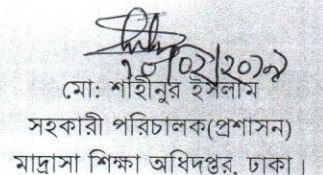 ১০/০২/২০১৯
মো: শাহীনুর ইসলাম
সহকারী পরিচালক(প্রশাসন)
মাদ্রাসা শিক্ষা অধিদপ্তর, ঢাকা।